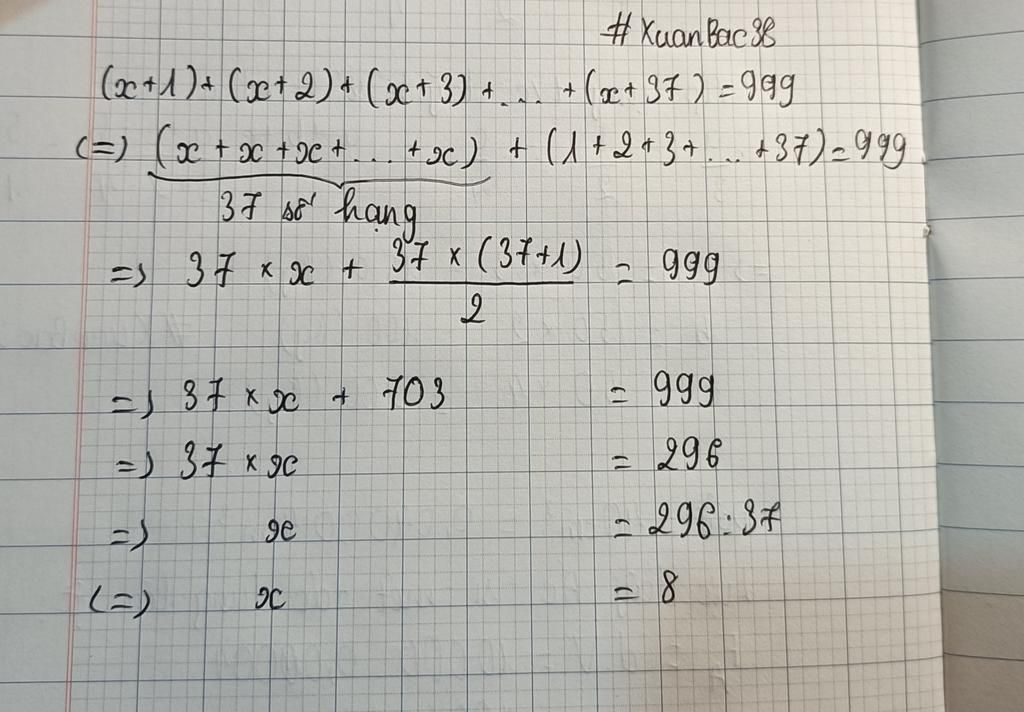 # XuanBac38
(x+1)+(x+2)+(x+3)+...+(x+37)=999
(=) (x+x+x+...+x) + (1+2+3+...+37)=999
37 số hạng
=) 37 × x + 37 × (37+1) / 2 = 999
=) 37 × x + 703 = 999
=) 37 × x = 296
=) x = 296:37
(=) x = 8